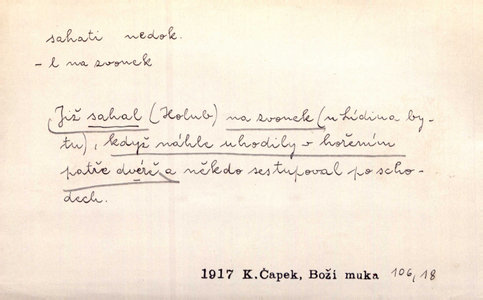 sahati nedok.
- l na zvonek
Již sahal (Holub) na zvonek (u hídina by-
tu), když náhle uhodily v hořením
patře dvéře a někdo sestupoval po scho-
dech.
1917 K.Čapek, Boží muka 106,18